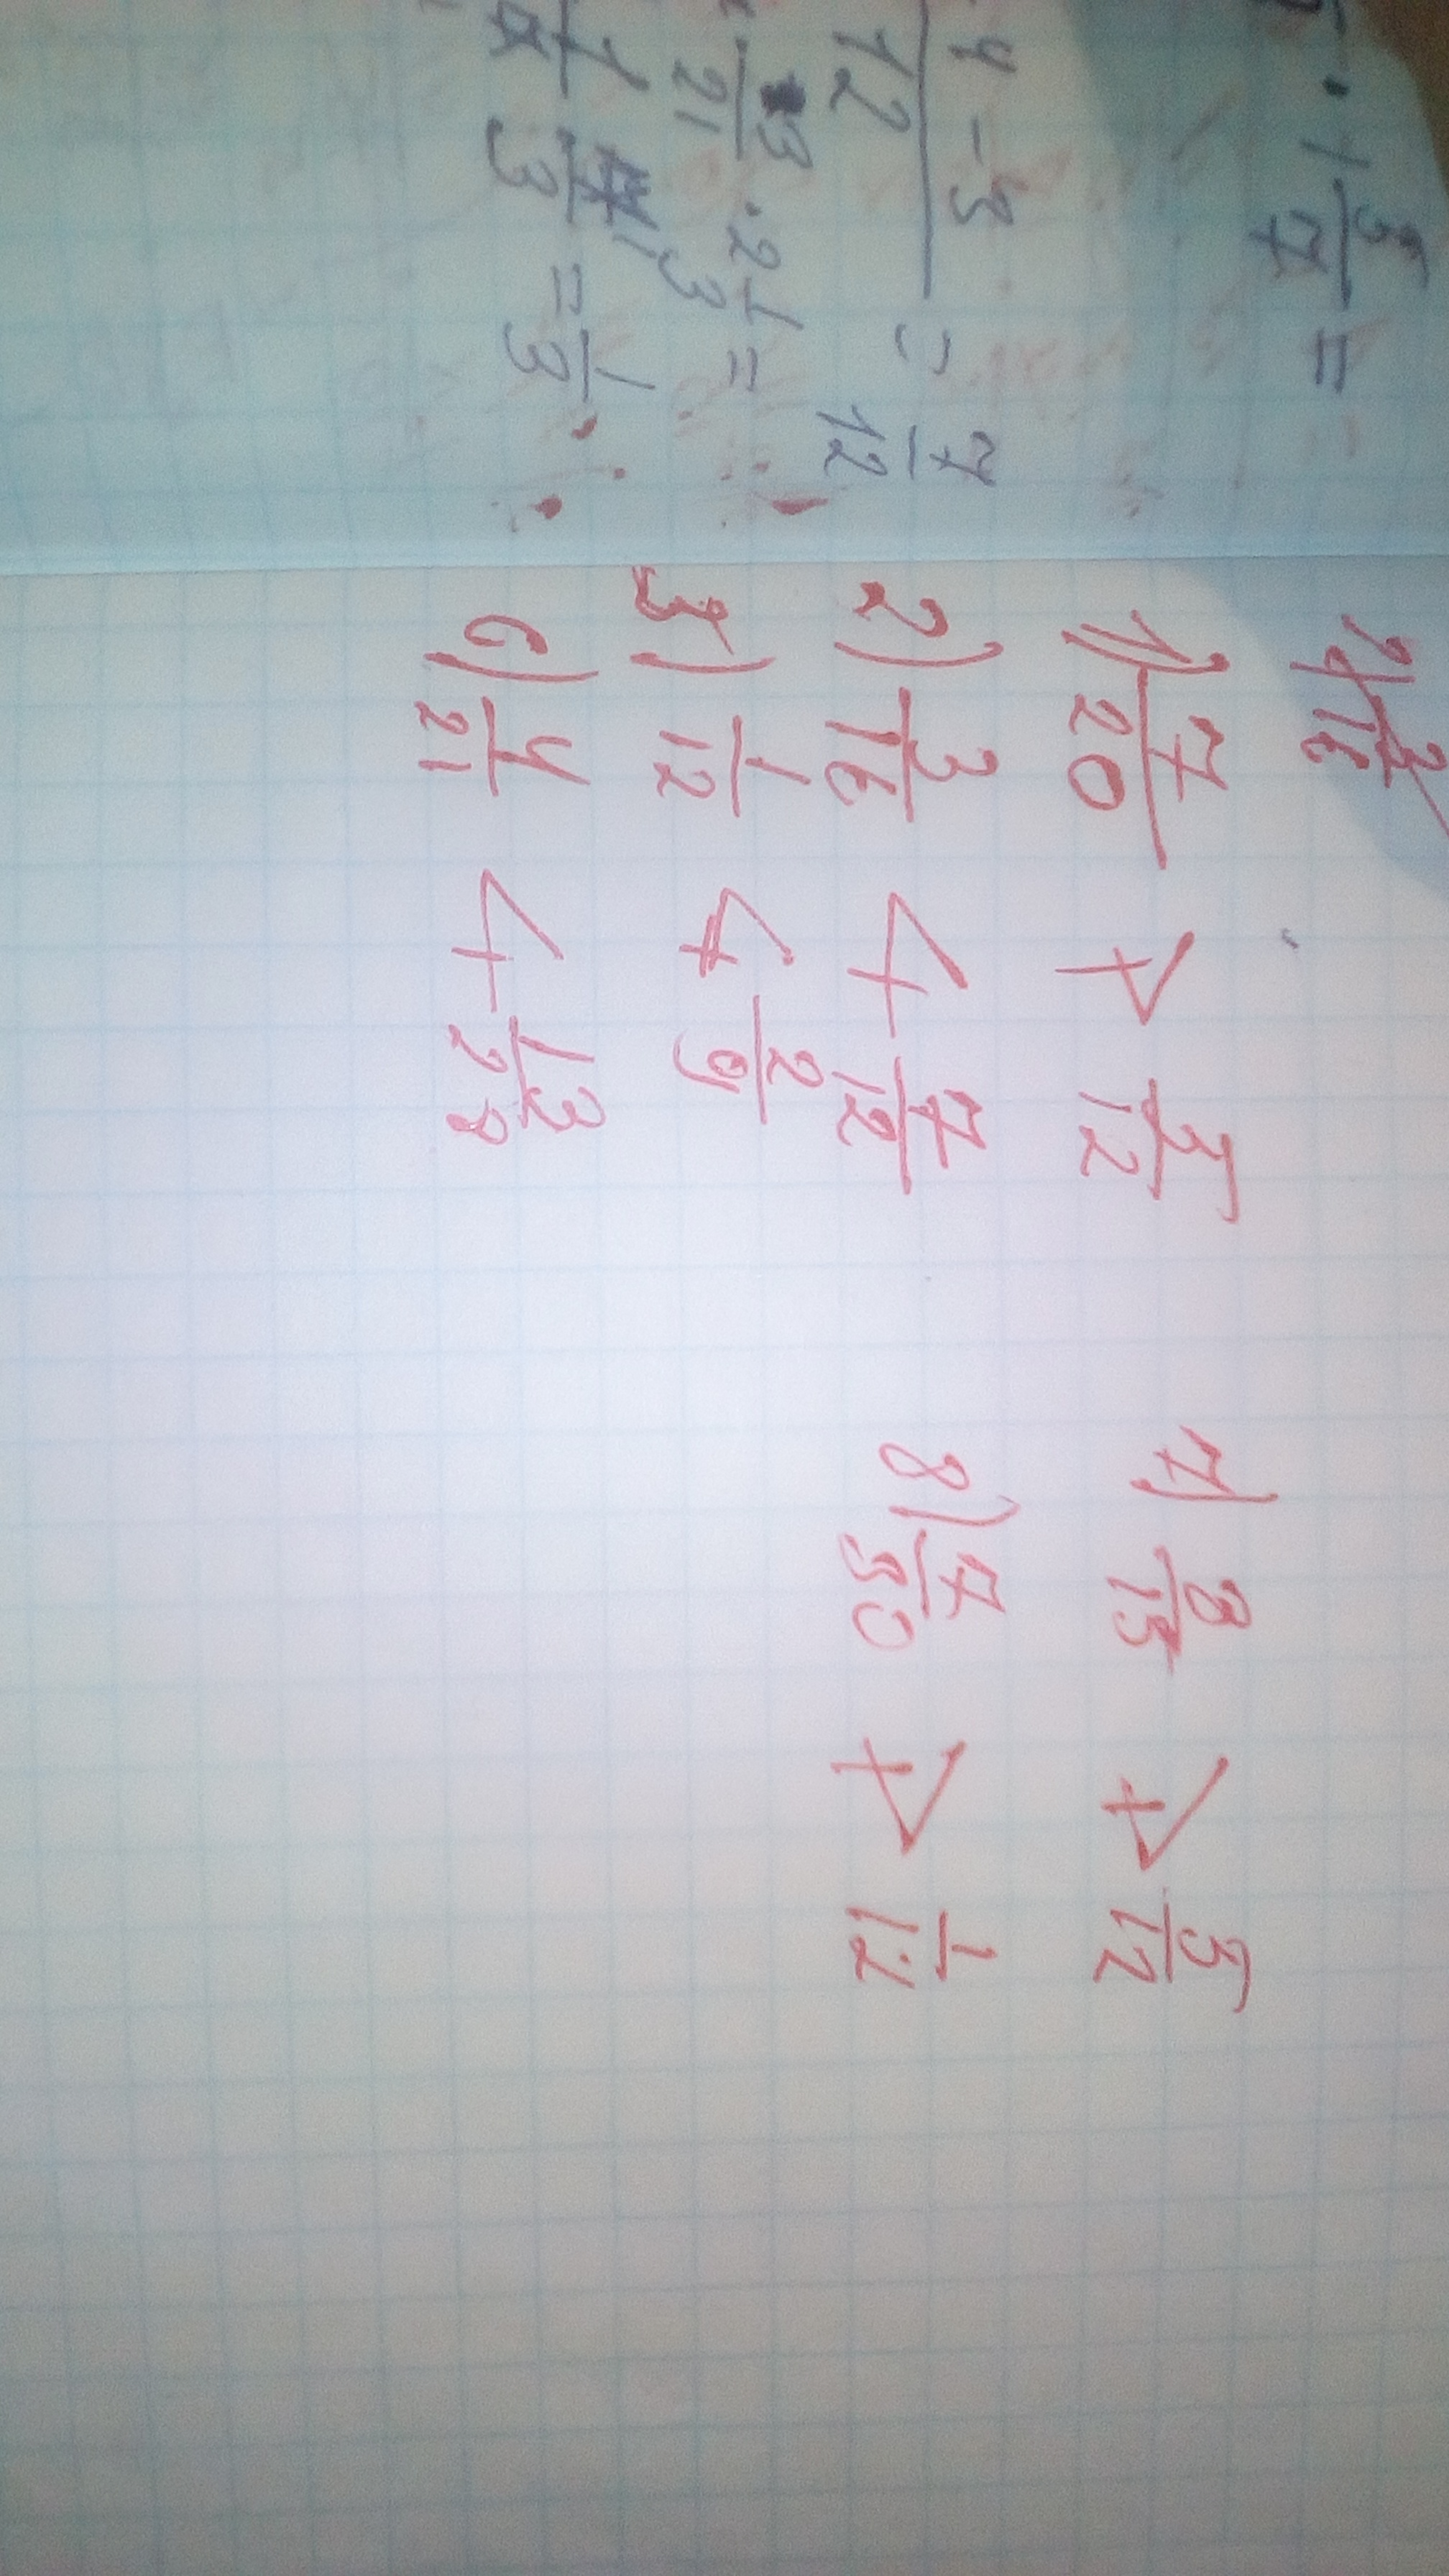 · 1 5/7 =
4 - 3/12 = 7/12
3/21 · 2 1/3 =
= 1/3
1) 7/20 > 5/12
2) 3/16 < 7/12
5) 1/12 < 2/9
6) 4/21 < 13/28
7) 8/15 > 5/12
8) 7/50 > 1/12